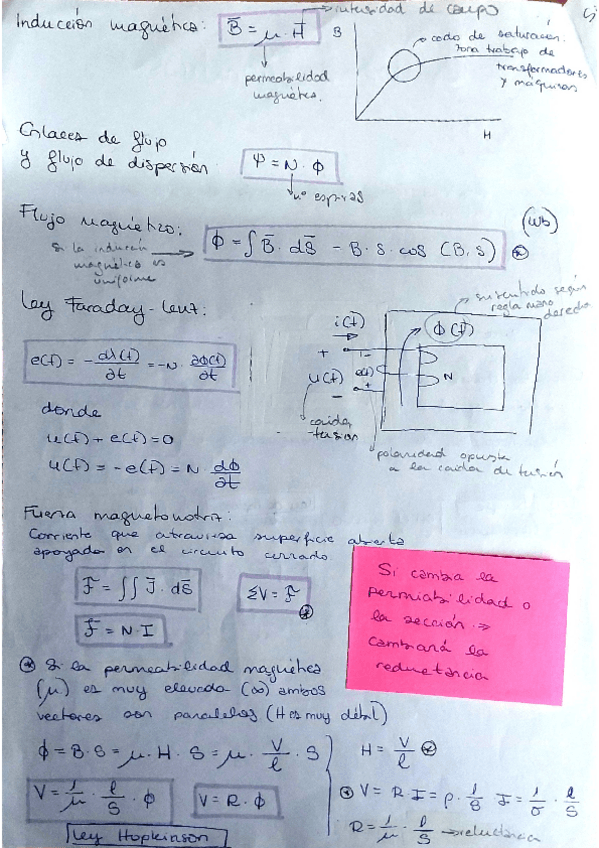 Inducción magnética: B̄ = μ · H̄ → intensidad de campo
permeabilidad
magnética.
B
H
codo de saturación.
Zona trabajo de
transformadores
y máquinas
Enlaces de flujo
y flujo de dispersión
Ψ = N · Φ
nº espiras
Flujo magnético:
(Wb)
Si la inducción
magnética es
uniforme
Φ = ∫ B̄ · dS̄ = B · S · cos (B, S)
Ley Faraday-Lenz:
su sentido según
regla mano
derecha
i(t)
Φ(t)
e(t) = - dλ(t)/∂t = -N · ∂Φ(t)/∂t
+
-
u(t)
e(t)
+
-
N
caida
tension
polaridad opuesta
a la caida de tensión
donde
u(t) + e(t) = 0
u(t) = -e(t) = N · dΦ/∂t
Fuerza magnetomotriz:
Corriente que atraviesa superficie abierta
apoyada en el circuito cerrado.
F = ∫∫ J̄ · dS̄
ΣV = F
F = N · I
Si cambia la
permiabilidad o
la sección =>
cambiará la
reductancia
* Si la permeabilidad magnética
(μ) es muy elevada (∞) ambos
vectores son paralelos (H es muy débil)
Φ = B · S = μ · H · S = μ · V/l · S
H = V/l *
V = 1/μ · l/S · Φ
V = R · Φ
* V = R I = ρ · l/S I = 1/σ · l/S
R = 1/μ · l/S → reluctancia
Ley Hopkinson